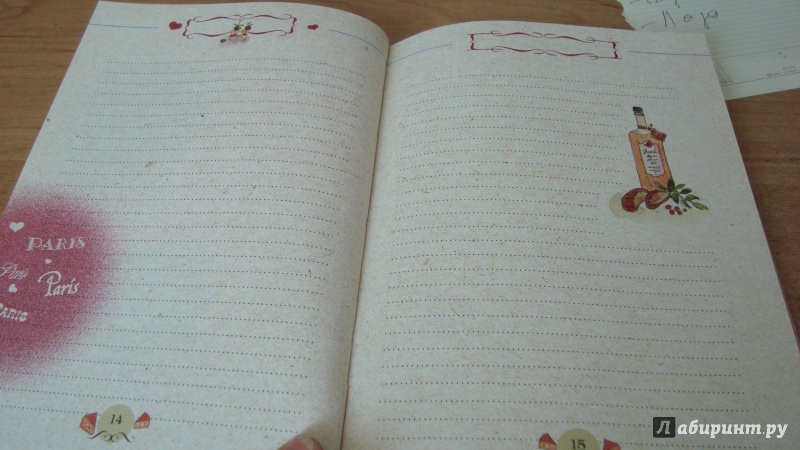 PARIS
Paris
Paris
PARIS
14
15
Лабиринт.ру